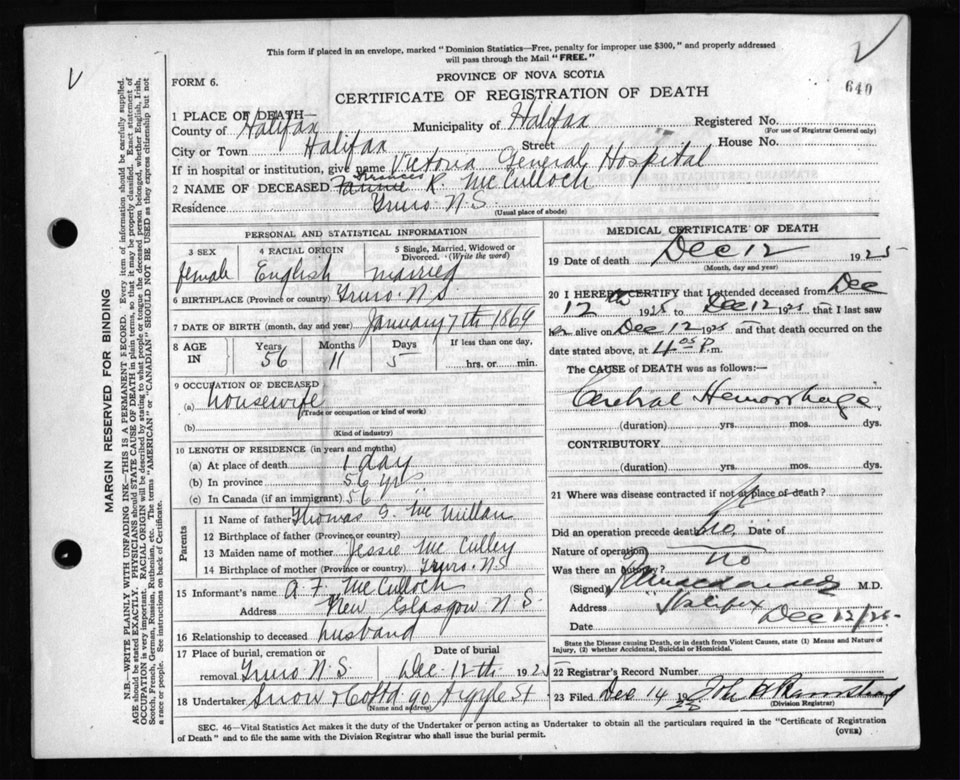 This form if placed in an envelope, marked "Dominion Statistics—Free, penalty for improper use $300," and properly addressed
will pass through the Mail "FREE."
FORM 6.
PROVINCE OF NOVA SCOTIA
CERTIFICATE OF REGISTRATION OF DEATH
640
1 PLACE OF DEATH—
County of Halifax Municipality of Halifax Registered No.
(For use of Registrar General only)
City or Town Halifax Street House No.
If in hospital or institution, give name Victoria General Hospital
Frances
2 NAME OF DECEASED Fannie R. McCulloch
Residence Truro N.S.
(Usual place of abode)
PERSONAL AND STATISTICAL INFORMATION
3 SEX 4 RACIAL ORIGIN 5 Single, Married, Widowed or
Divorced. (Write the word)
female English married
6 BIRTHPLACE (Province or country) Truro. N.S
7 DATE OF BIRTH (month, day and year) January 7th 1869
8 AGE IN Years Months Days If less than one day,
56 11 5 hrs. or min.
9 OCCUPATION OF DECEASED
(a) housewife
(Trade or occupation or kind of work)
(b)
(Kind of industry)
10 LENGTH OF RESIDENCE (in years and months)
(a) At place of death 1 day
(b) In province 56 yrs.
(c) In Canada (if an immigrant) 56
Parents
11 Name of father Thomas G. McMillan
12 Birthplace of father (Province or country)
13 Maiden name of mother Jessie McCulley
14 Birthplace of mother (Province or country) Truro. N.S
15 Informant's name A. F. McCulloch
Address New Glasgow N.S.
16 Relationship to deceased husband
17 Place of burial, cremation or Date of burial
removal Truro N.S. Dec. 12th 1925
18 Undertaker Snow & Co Ltd 90 Argyle St
(Name and address)
MEDICAL CERTIFICATE OF DEATH
19 Date of death Dec 12 1925
(Month, day and year)
20 I HEREBY CERTIFY that I attended deceased from Dec
12th 1925 to Dec 12 1925, that I last saw
alive on Dec 12 1925 and that death occurred on
date stated above, at 4 05 P.m.
The CAUSE of DEATH was as follows:—
Cerebral Hemorrhage
(duration) yrs. mos. dys.
CONTRIBUTORY
(duration) yrs. mos. dys.
21 Where was disease contracted if not at place of death?
Did an operation precede death? No. Date of
Nature of operation
Was there an autopsy? no
(Signed) M.D.
Address Halifax
Date Dec 12/25
State the Disease causing Death, or in death from Violent Causes, state (1) Means and Nature of
Injury, (2) whether Accidental, Suicidal or Homicidal.
22 Registrar's Record Number
23 Filed Dec 14 1925
(Division Registrar)
SEC. 46—Vital Statistics Act makes it the duty of the Undertaker or person acting as Undertaker to obtain all the particulars required in the "Certificate of Registration
of Death" and to file the same with the Division Registrar who shall issue the burial permit.
(OVER)
MARGIN RESERVED FOR BINDING
N.B.—WRITE PLAINLY WITH UNFADING INK—THIS IS A PERMANENT RECORD. Every item of information should be carefully supplied.
AGE should be stated EXACTLY. PHYSICIANS should STATE CAUSE OF DEATH in plain terms, so that it may be properly classified. Exact statement of
OCCUPATION is very important. RACIAL ORIGIN will be described by stating to what people or tongue the deceased person belonged, whether English, Irish,
Scotch, French, German, Russian, Ruthenian, etc. The terms "AMERICAN" or "CANADIAN" SHOULD NOT BE USED as they express citizenship but not
a race or people. See instructions on back of Certificate.